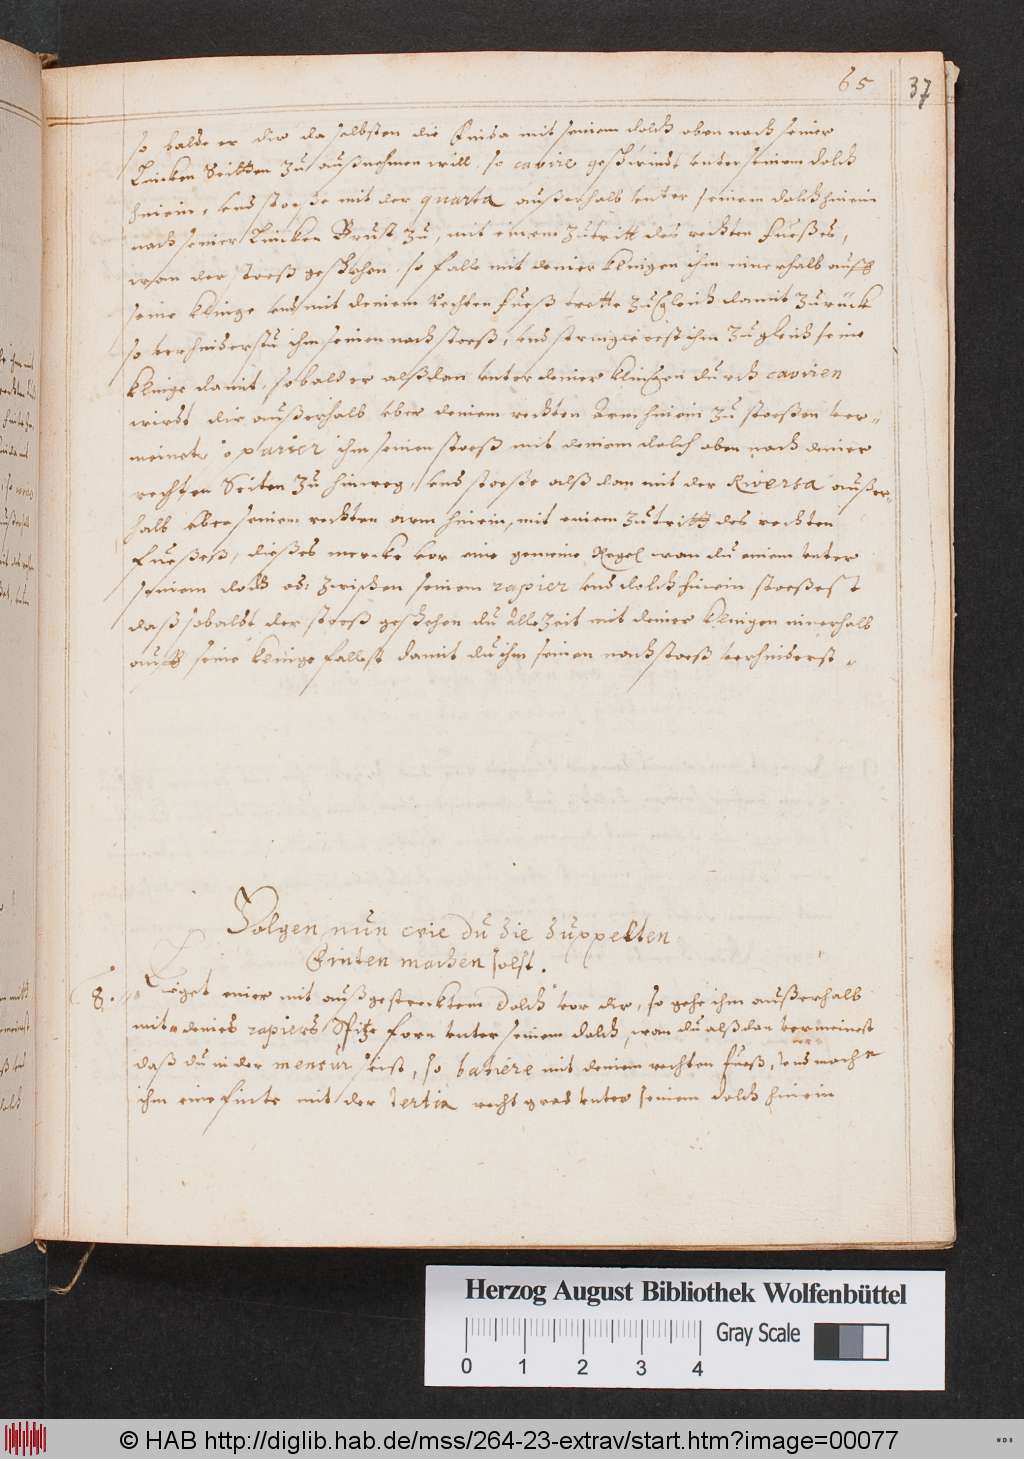 65 37
so balde er dir da selbsten die Finda mit seinem dolch oben nach seiner
Lincken Seitten zu außnehmen will, so cavire geschwindt unter seinem dolch
hinein, und stoeße mit der quarta außerhalb unter seinem dolch hinein
nach seiner Lincken Brust zu, mit einem zutritt des rechten fueßes,
wan der stoeß geschehen, so falle mit deiner klingen ihm innerhalb auff
seine klinge und mit deinem rechten fueß trette zugleich damit zurück
so verhinderstu ihm seinen nachstoeß, und stringierest ihm zugleich seine
klinge damit, sobald er alßdan unter deiner klingen durch caviren
wirdt dir außerhalb uber deinem rechten Arm hinein zu stoeßen ver-
meinet, so parier ihm seinen stoeß mit deinem dolch oben nach deiner
rechten Seiten zu hinweg, und stoeße alß dan mit der Riversa außer-
halb uber seinem rechten arm hinein, mit einem zutritt des rechten
fueßeß, dießes mercke vor eine gemeine Regel wan du einem unter
seinem dolch od: zwischen seinem rapier und dolch hinein stoeßest
daß sobaldt der stoeß geschehen du alle Zeit mit deiner klingen innerhalb
auff seine klinge fallest damit du ihm seinen nachstoeß verhinderst.
Volgen nun wie du die duppelten
Finten machen solst.
8. Liget einer mit außgestrecktem Dolch vor dir, so gehe ihm außerhalb
mit deines rapiers Spitze forn unter seinem dolch, wan du alßdan vermeinest
daß du in der mensur seist, so batiere mit deinem rechten fueß, und mache
ihm eine finte mit der tertia recht grad unter seinem dolch hinein
Herzog August Bibliothek Wolfenbüttel
0 1 2 3 4 Gray Scale
© HAB http://diglib.hab.de/mss/264-23-extrav/start.htm?image=00077